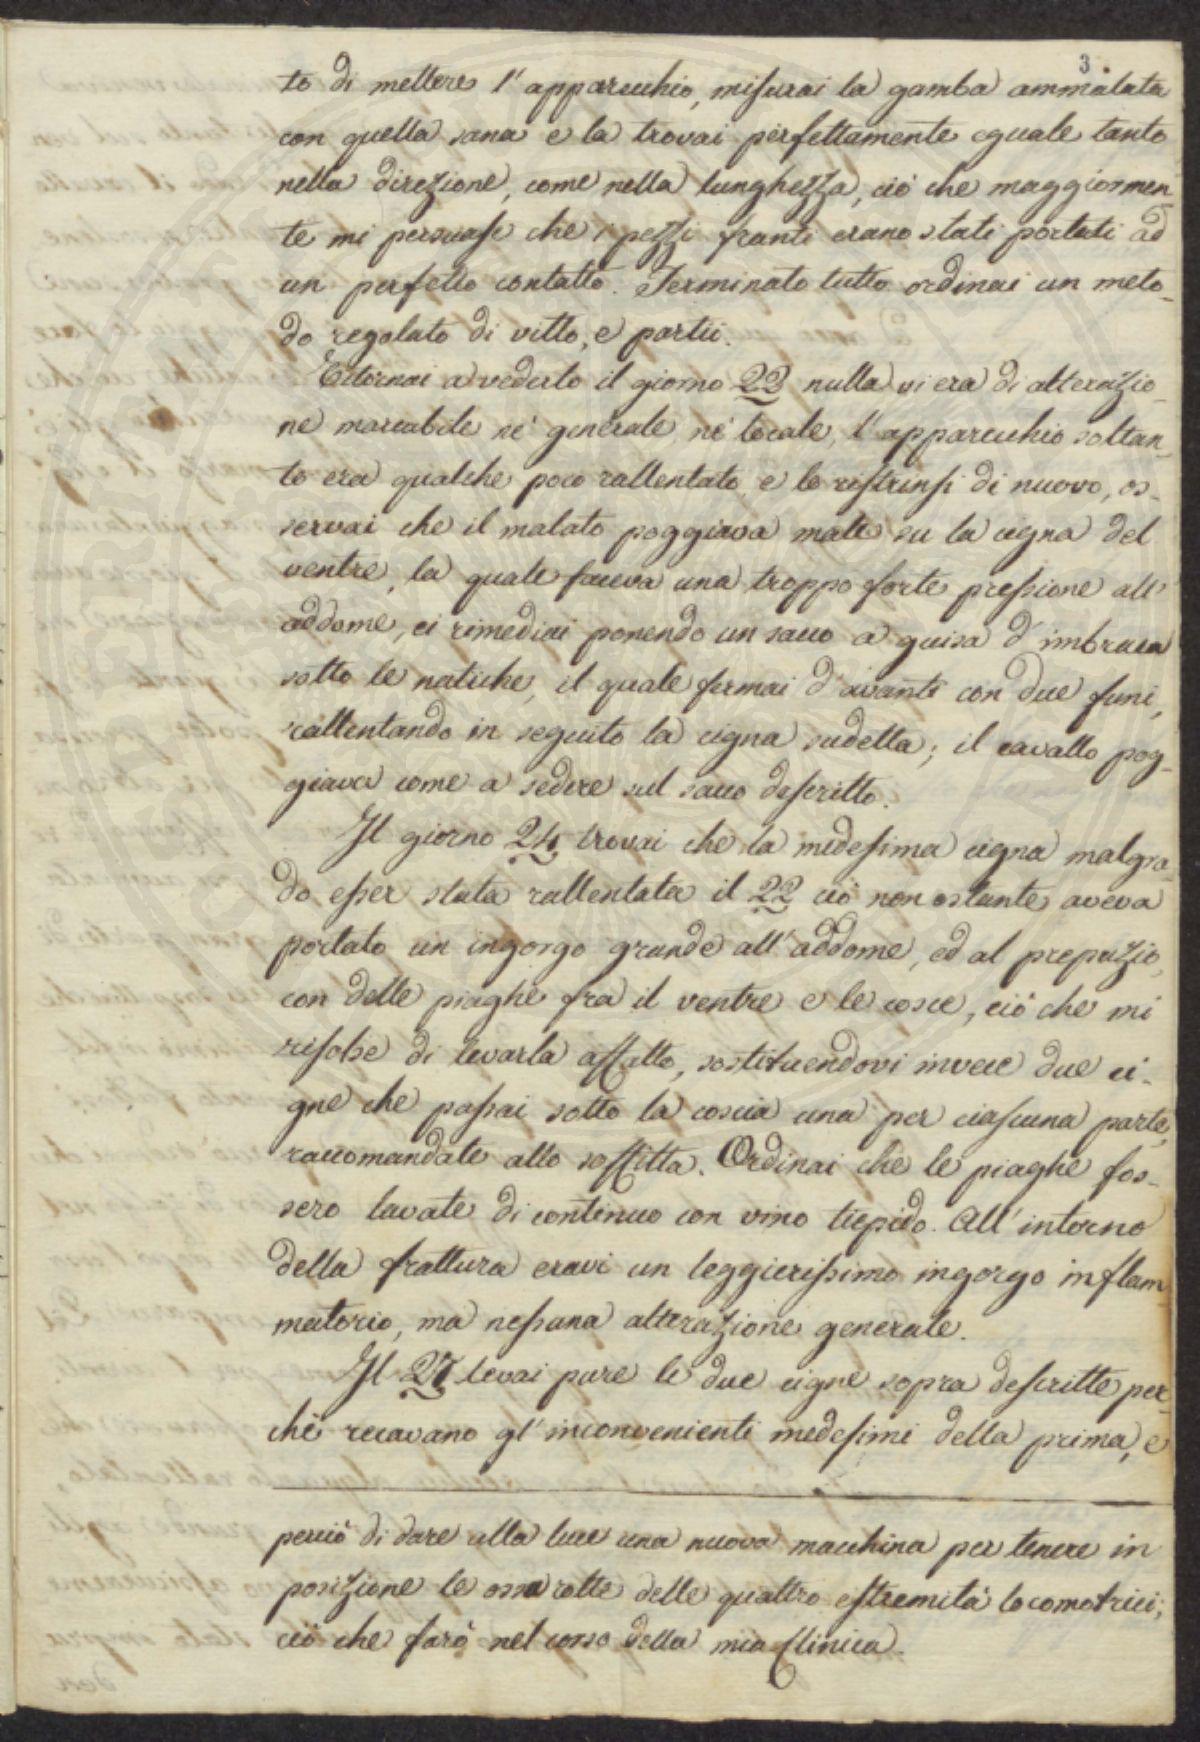 3.
to di mettere l'apparecchio, misurai la gamba ammalata
con quella sana e la trovai perfettamente eguale tanto
nella direzione, come nella lunghezza, ciò che maggiormen-
te mi persuase che i pezzi franti erano stati portati ad
un perfetto contatto. Terminato tutto ordinai un meto-
do regolato di vitto, e partii.
Ritornai a vederlo il giorno 22 nulla vi era di alterazio-
ne marcabile nè generale nè locale, l'apparecchio soltan-
to era qualche poco rallentato e lo ristrinsi di nuovo, os-
servai che il malato poggiava male su la cigna del
ventre, la quale faceva una troppo forte pressione all'
addome, ci rimediai ponendo un sacco a guisa d'imbraca
sotto le natiche, il quale fermai d'avanti con due funi,
rallentando in seguito la cigna sudetta; il cavallo pog-
giava come a sedere sul sacco descritto.
Il giorno 24 trovai che la medesima cigna malgra-
do esser stata rallentata il 22 ciò non ostante aveva
portato un ingorgo grande all'addome, ed al prepuzio,
con delle piaghe fra il ventre e le cosce, ciò che mi
risolse di levarla affatto, sostituendovi invece due ci-
gne che passai sotto la coscia una per ciascuna parte,
raccomandate allo soffitta. Ordinai che le piaghe fos-
sero lavate di continuo con vino tiepido. All'intorno
della frattura eravi un leggierissimo ingorgo inflam-
matorio, ma nessuna alterazione generale.
Il 27 levai pure le due cigne sopra descritte per-
chè recavano gl'inconvenienti medesimi della prima, e
perciò di dare alla luce una nuova macchina per tenere in
posizione le ossa rotte delle quattro estremità locomotrici;
ciò che farò nel corso della mia Clinica.